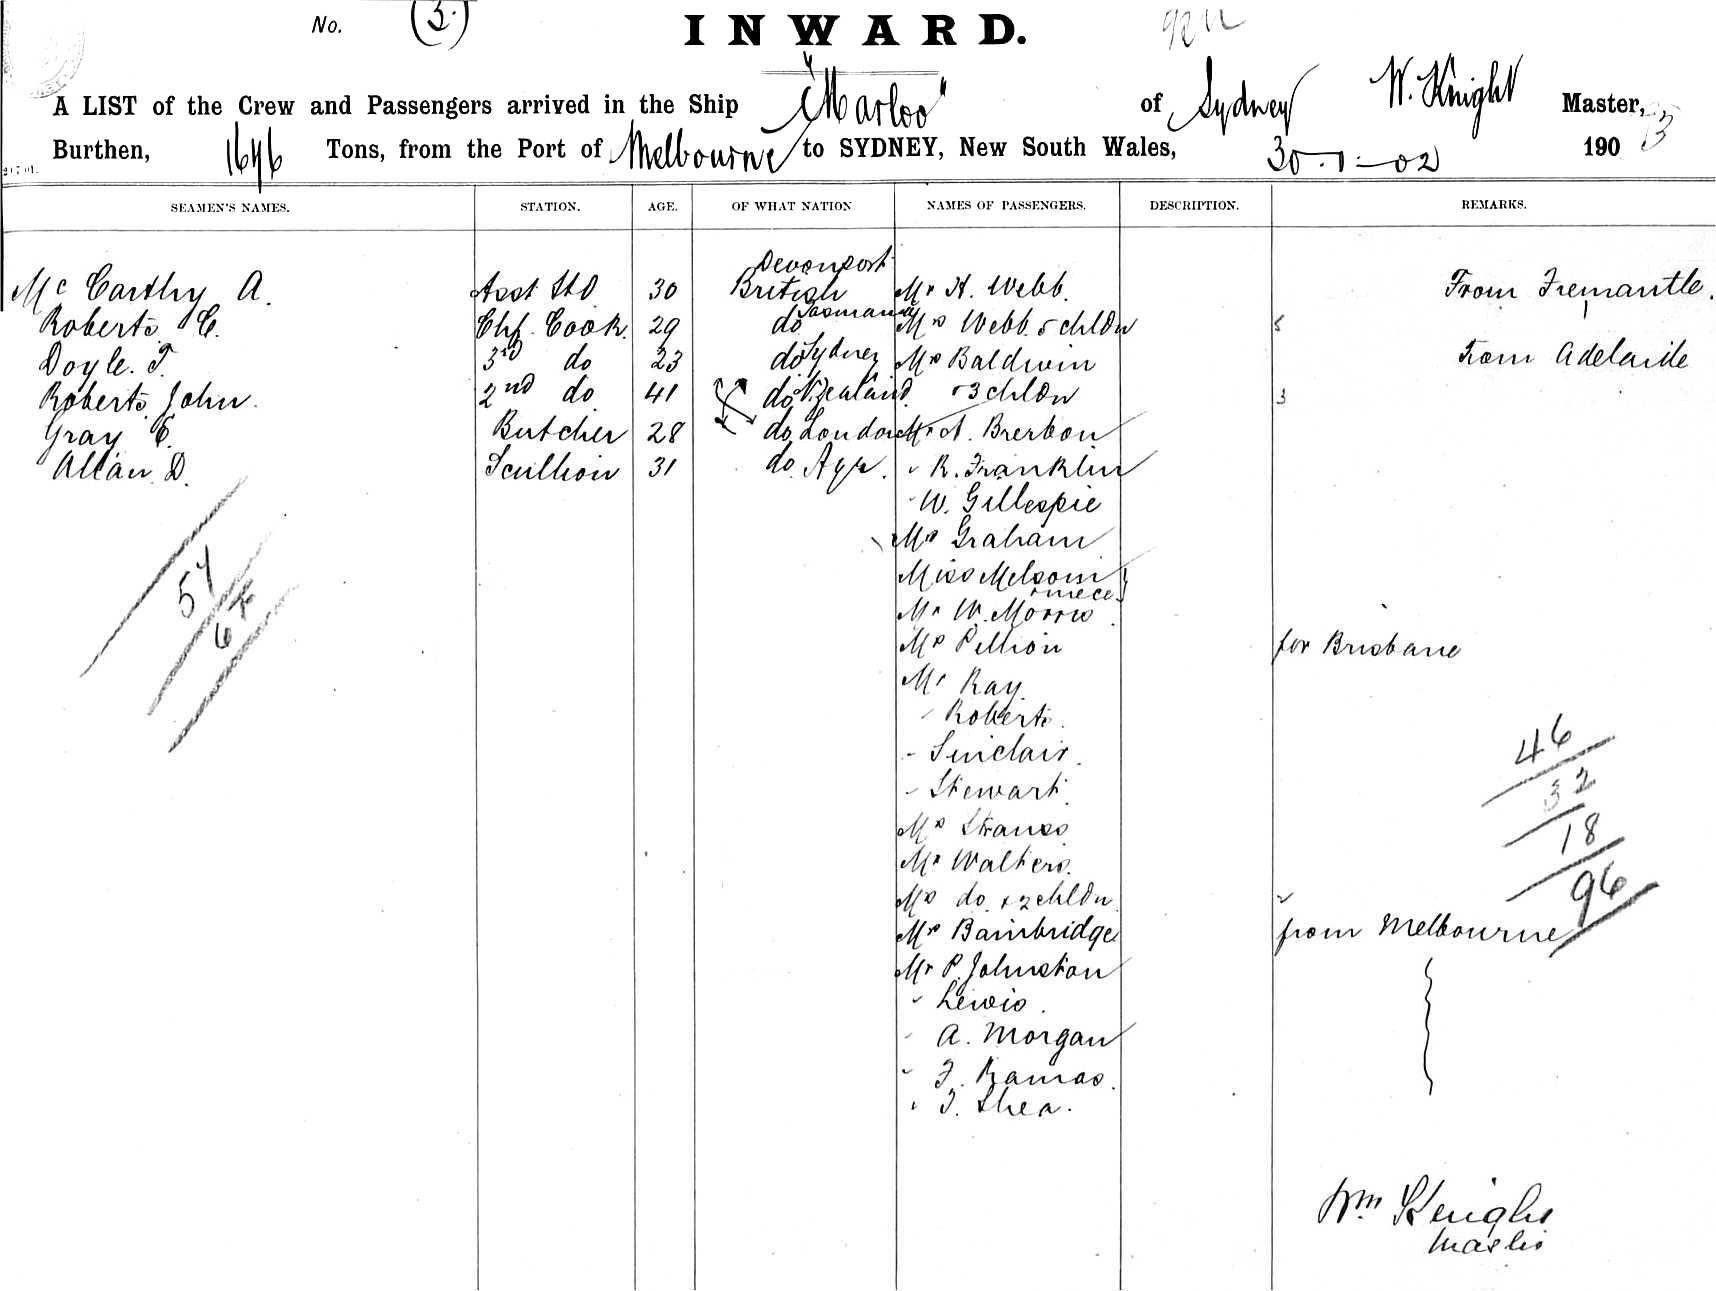 No. (3.)
INWARD.
A LIST of the Crew and Passengers arrived in the Ship "Marloo" of Sydney W. Knight Master,
Burthen, 1646 Tons, from the Port of Melbourne to SYDNEY, New South Wales, 30-1-02 1903
SEAMEN'S NAMES. STATION. AGE. OF WHAT NATION NAMES OF PASSENGERS. DESCRIPTION. REMARKS.
McCarthy A. Asst Std 30 British Devonport Mr H. Webb. From Fremantle.
Roberts C. Chf. Cook. 29 do Tasmania Mrs Webb 5 chldn 5
Doyle. T. 3rd do 23 do Sydney Mrs Baldwin From Adelaide
Roberts John. 2nd do 41 do N Zealand. 3 chldn 3
Gray C. Butcher 28 do London Mr A. Brerton
Allan D. Scullion 31 do Ayr. " R. Franklin
" W. Gillespie
Mrs Graham
Miss Melsom
+ niece
54
6
Mr W. Morris
Mrs Pellion for Brisbane
Mr Ray.
" Roberts.
" Sinclair.
" Stewart.
46
32
18
96
Mrs Strauss
Mr Walters.
Mrs do. + 2 chldn. 2
Mrs Bainbridge from Melbourne
Mr P. Johnston
" Lewis.
" A. Morgan
" F. Ramas.
" T. Shea.
Wm Knight
Master